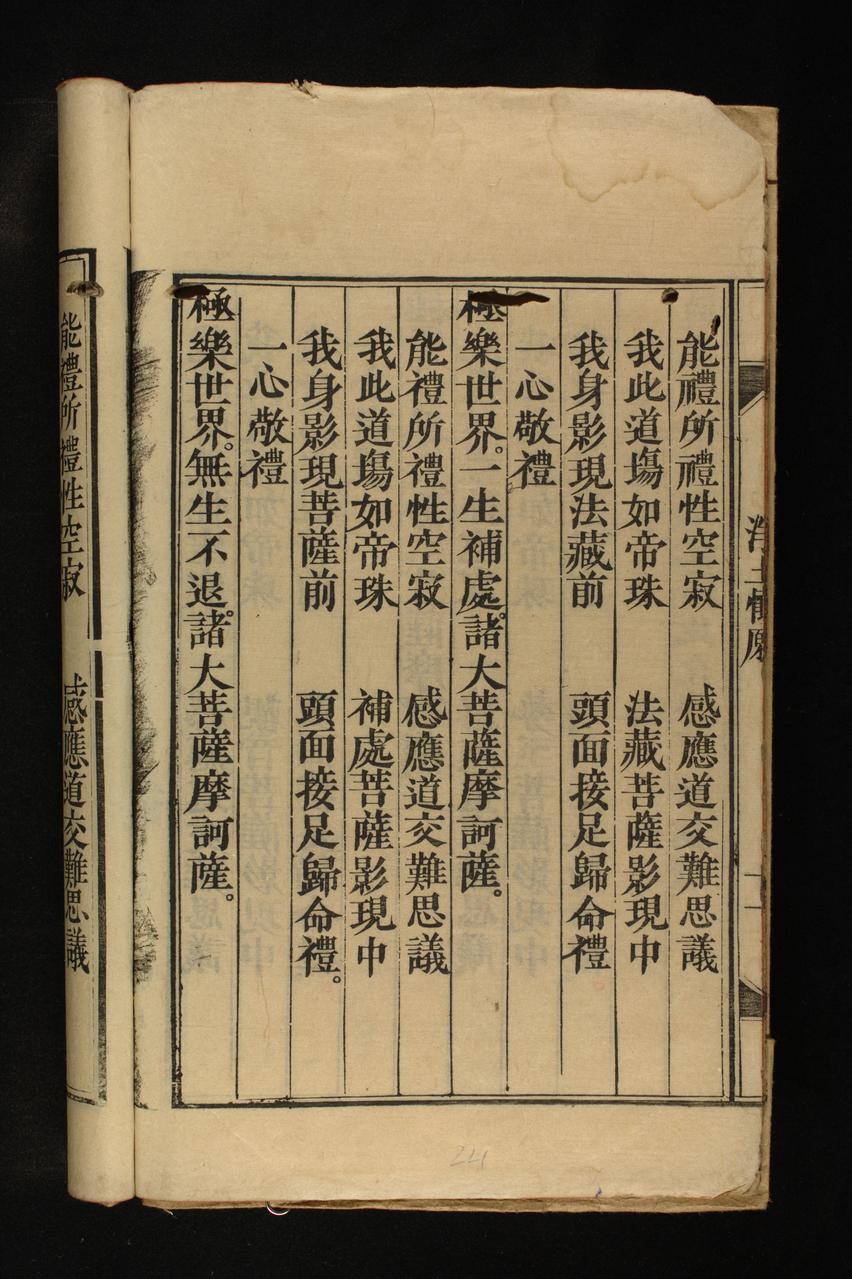 能禮所禮性空寂 感應道交難思議
我此道塲如帝珠 法藏菩薩影現中
我身影現法藏前 頭面接足歸命禮
一心敬禮
極樂世界。一生補處。諸大菩薩摩訶薩。
能禮所禮性空寂 感應道交難思議
我此道塲如帝珠 補處菩薩影現中
我身影現菩薩前 頭面接足歸命禮。
一心敬禮
極樂世界。無生不退。諸大菩薩摩訶薩。
能禮所禮性空寂 感應道交難思議
24